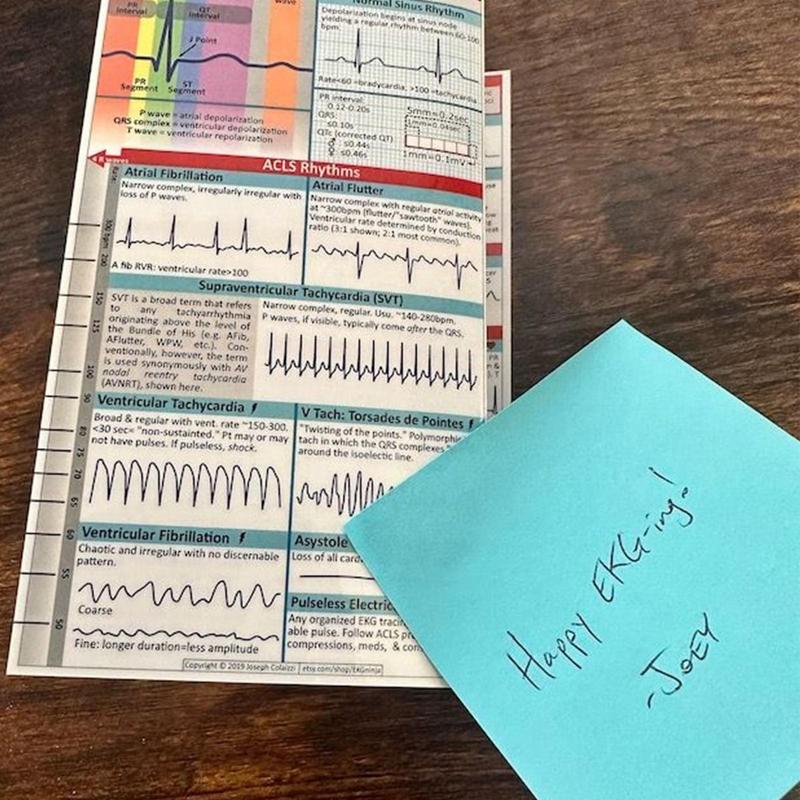 PR
Interval
QT
Interval
wave
J Point
PR
Segment
ST
Segment
P wave = atrial depolarization
QRS complex = ventricular depolarization
T wave = ventricular repolarization
Normal Sinus Rhythm
Depolarization begins at sinus node
yielding a regular rhythm between 60-100
bpm.
Rate<60 =bradycardia; >100 =tachycardia
PR interval:
0.12-0.20s
QRS:
≤0.10s
QTc (corrected QT)
♂ ≤0.44s
♀ ≤0.46s
5mm=0.2sec
1mm=0.04sec
1mm=0.1mV
R waves
ACLS Rhythms
Atrial Fibrillation
Narrow complex, irregularly irregular with
loss of P waves.
A fib RVR: ventricular rate>100
Atrial Flutter
Narrow complex with regular atrial activity
at ~300bpm (flutter/"sawtooth" waves).
Ventricular rate determined by conduction
ratio (3:1 shown; 2:1 most common).
Supraventricular Tachycardia (SVT)
SVT is a broad term that refers
to any tachyarrhythmia
originating above the level of
the Bundle of His (e.g. AFib,
AFlutter, WPW, etc.). Con-
ventionally, however, the term
is used synonymously with AV
nodal reentry tachycardia
(AVNRT), shown here.
Narrow complex, regular. Usu. ~140-280bpm.
P waves, if visible, typically come after the QRS.
Ventricular Tachycardia
Broad & regular with vent. rate ~150-300.
<30 sec= "non-sustainted." Pt may or may
not have pulses. If pulseless, shock.
V Tach: Torsades de Pointes
"Twisting of the points." Polymorphic
tach in which the QRS complexes
around the isoelectic line.
Ventricular Fibrillation
Chaotic and irregular with no discernable
pattern.
Coarse
Fine: longer duration=less amplitude
Asystole
Loss of all card
Pulseless Electric
Any organized EKG tracin
able pulse. Follow ACLS pr
compressions, meds, & con
300 bpm
200
150
125
100
90
80
75
70
65
60
55
50
Copyright © 2019 Joseph Colaizzi
etsy.com/shop/EKGninja
Happy EKG-ing!
-JOEY